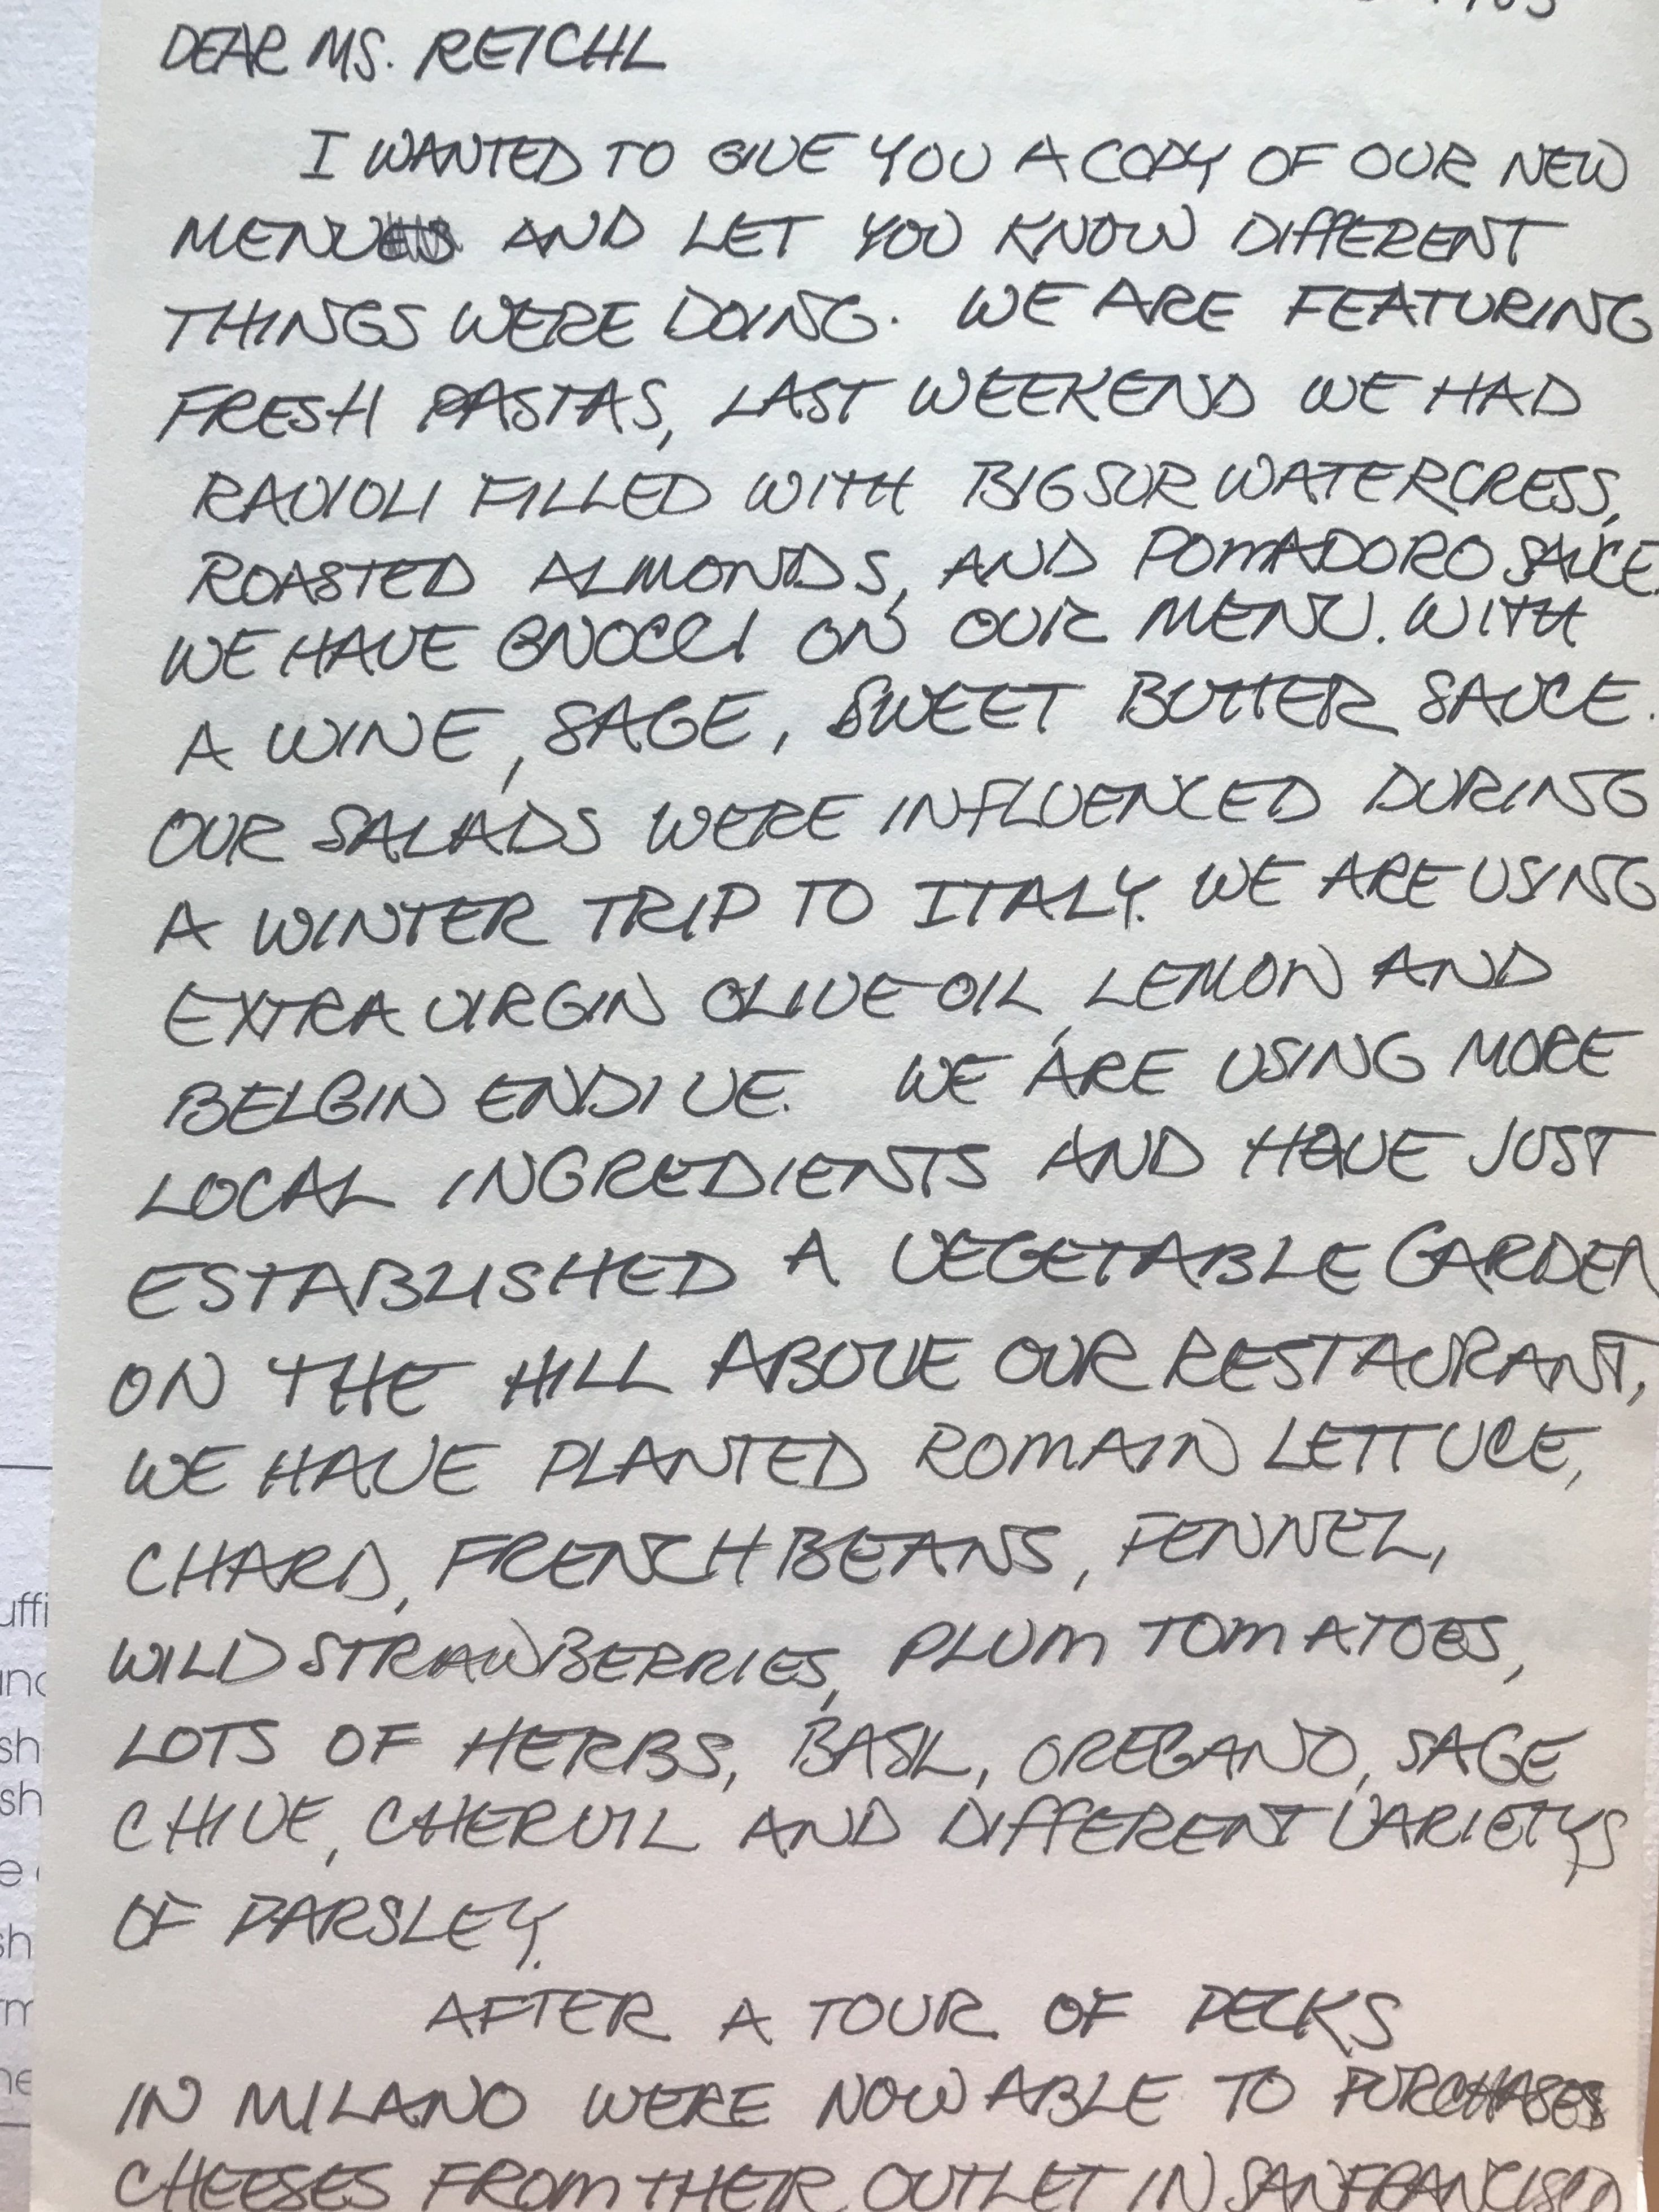 DEAR MS. REICHL
I WANTED TO GIVE YOU A COPY OF OUR NEW
MENU AND LET YOU KNOW DIFFERENT
THINGS WERE DOING. WE ARE FEATURING
FRESH PASTAS, LAST WEEKEND WE HAD
RAVIOLI FILLED WITH BIG SUR WATERCRESS,
ROASTED ALMONDS, AND POMADORO SAUCE.
WE HAVE GNOCCI ON OUR MENU. WITH
A WINE, SAGE, SWEET BUTTER SAUCE.
OUR SALADS WERE INFLUENCED DURING
A WINTER TRIP TO ITALY. WE ARE USING
EXTRA VIRGIN OLIVE OIL, LEMON AND
BELGIN ENDIVE. WE ARE USING MORE
LOCAL INGREDIENTS AND HAVE JUST
ESTABLISHED A VEGETABLE GARDEN
ON THE HILL ABOVE OUR RESTAURANT,
WE HAVE PLANTED ROMAIN LETTUCE,
CHARD, FRENCH BEANS, FENNEL,
WILD STRAWBERRIES, PLUM TOMATOES,
LOTS OF HERBS, BASIL, OREGANO, SAGE
CHIVE, CHERVIL AND DIFFERENT VARIETYS
OF PARSLEY.
AFTER A TOUR OF PECKS
IN MILANO WERE NOW ABLE TO PURCHASE
CHEESES FROM THEIR OUTLET IN SAN FRANCISCO